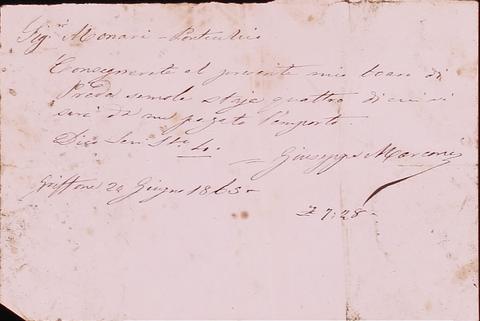 Sigri Monari - Pontecchio
Consegnerete al presente mio boaro di
Preda semola staja quattro di cui vi
sarà da me pagato l'importo
Dico Sem. Sta 4. = Giuseppe Marconi
Griffone 24 Giugno 1863 -
£ 7:28 -